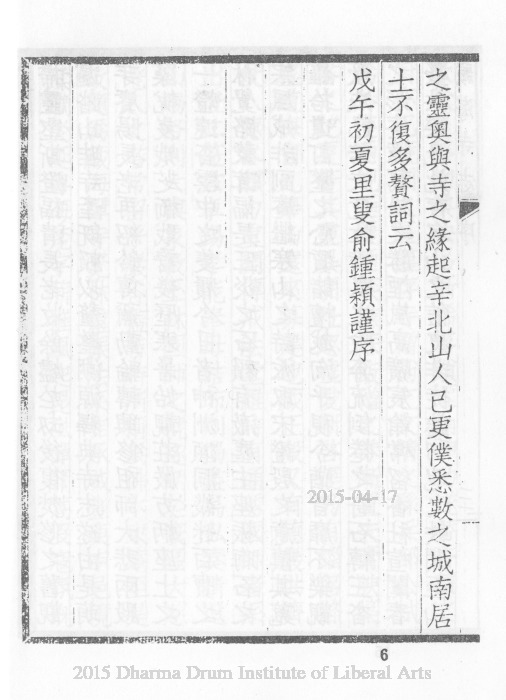 之靈奧與寺之緣起辛北山人已更僕悉數之城南居
士不復多贅詞云
戊午初夏里叟俞鍾穎謹序
2015-04-17
6
2015 Dharma Drum Institute of Liberal Arts